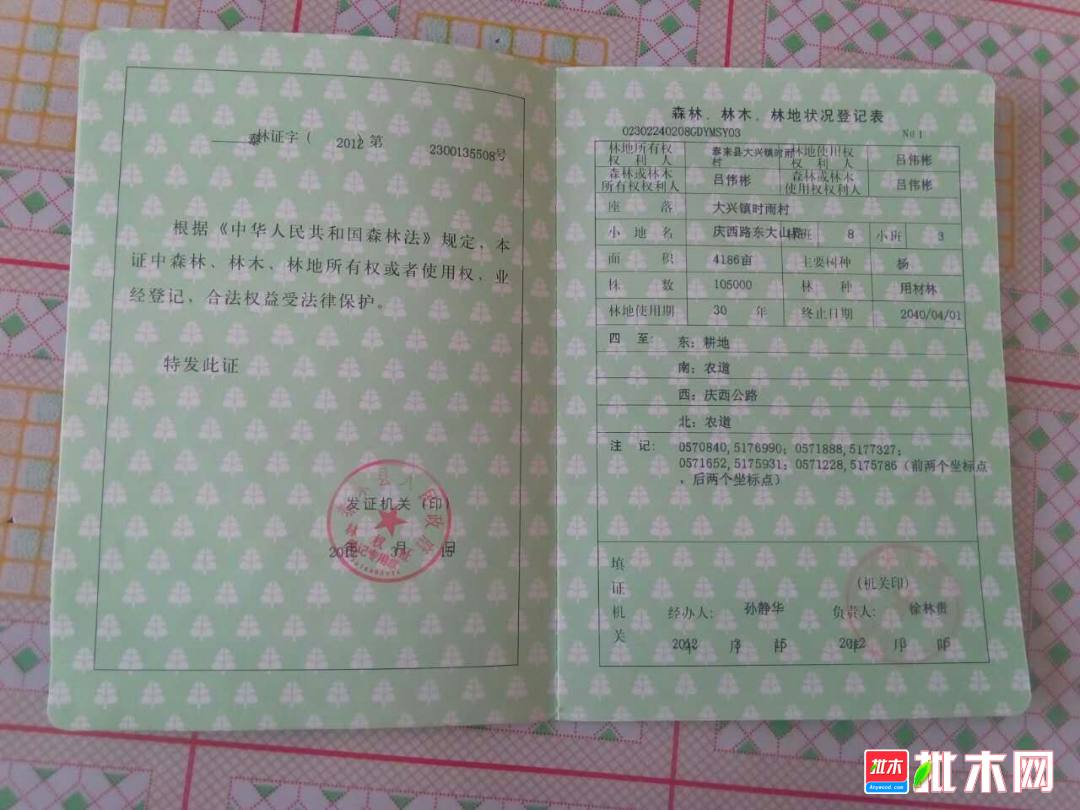 泰 林证字（ 2012 ）第 2300135508号
根据《中华人民共和国森林法》规定，本
证中森林、林木、林地所有权或者使用权，业
经登记，合法权益受法律保护。
特发此证
发证机关（印）
森林、林木、林地状况登记表
02302240208GDYMSY03 No 1
林地所有权权利人 泰来县大兴镇时雨村 林地使用权权利人 吕伟彬
森林或林木所有权权利人 吕伟彬 森林或林木使用权权利人 吕伟彬
座落 大兴镇时雨村
小地名 庆西路东大山 林班 8 小班 3
面积 4186亩 主要树种 杨
株数 105000 林种 用材林
林地使用期 30 年 终止日期 2040/04/01
四至： 东：耕地
南：农道
西：庆西公路
北：农道
注记： 0570840,5176990；0571888,5177327；
0571652,5175931；0571228,5175786（前两个坐标点
，后两个坐标点）
填证机关
（机关印）
经办人： 孙静华 负责人： 徐林贵
2012年 月 日 2012年 月 日
批木
Anywood.com
批木网